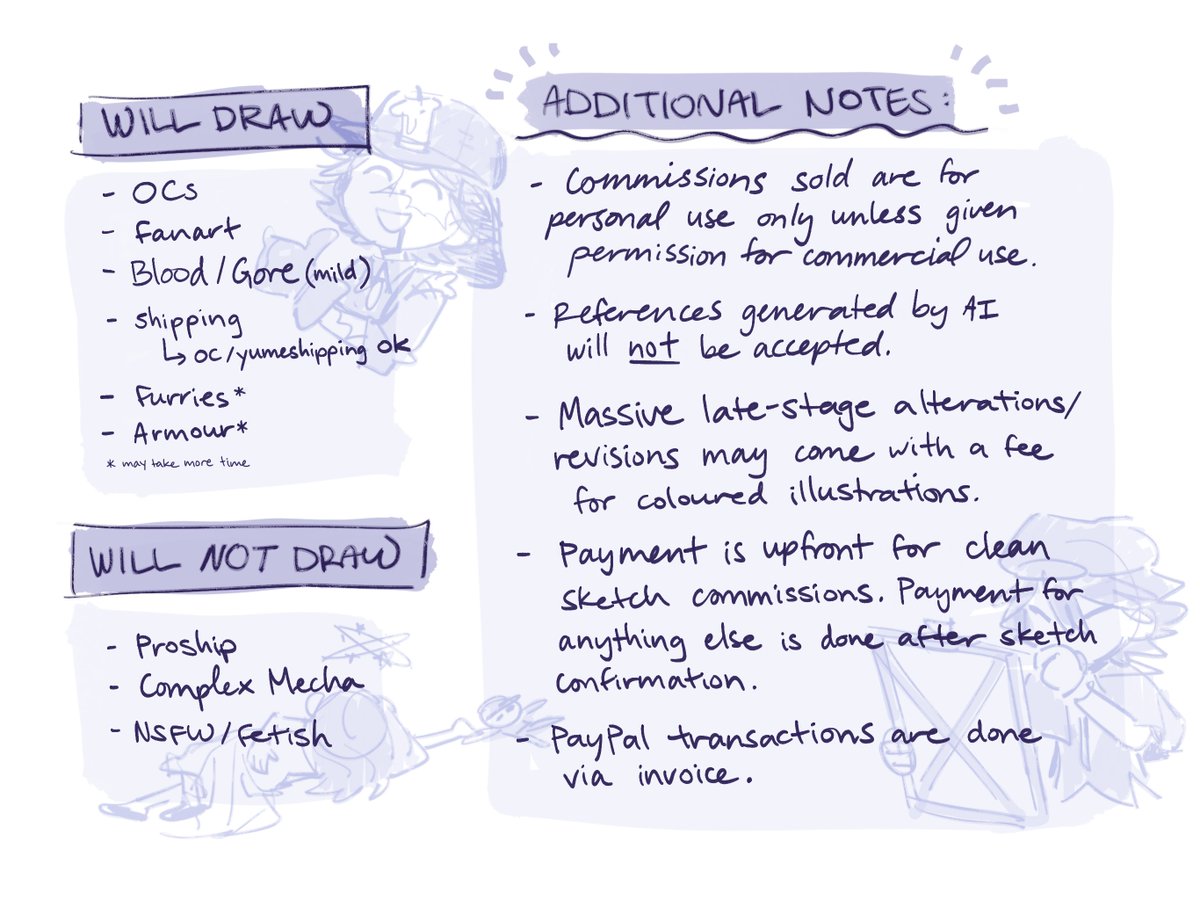 WILL DRAW
- OCs
- Fanart
- Blood/Gore (mild)
- Shipping
↳ OC/yumeshipping OK
- Furries*
- Armour*
* may take more time
WILL NOT DRAW
- Proship
- Complex Mecha
- NSFW/Fetish
ADDITIONAL NOTES:
- Commissions sold are for
personal use only unless given
permission for commercial use.
- References generated by AI
will not be accepted.
- Massive late-stage alterations/
revisions may come with a fee
for coloured illustrations.
- Payment is upfront for clean
sketch commissions. Payment for
anything else is done after sketch
confirmation.
- PayPal transactions are done
via invoice.